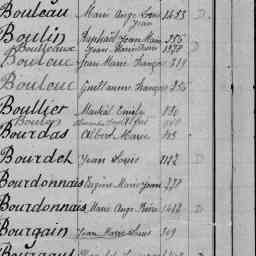 Bouleau Marie Ange Louis 1455 D
Jean
Boulin Raphaël Jean Marie 356
Boulleaux Jean Marie 1578 D
Boulouc Jean Marie François 211
Boulouc Guillaume François 256
Boullier Martial Emile 180
Bourdas Albert Marie 165
Bourdet Jean Louis 1112 D
Bourdonnais Eugène Marie Jean 237
Bourdonnais Marie Ange Pierre 1412 D
Bourgain Jean Marie Louis 309